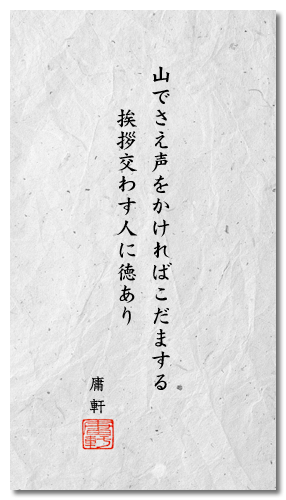 山でさえ声をかければこだまする
挨拶交わす人に徳あり
庸軒
庸軒